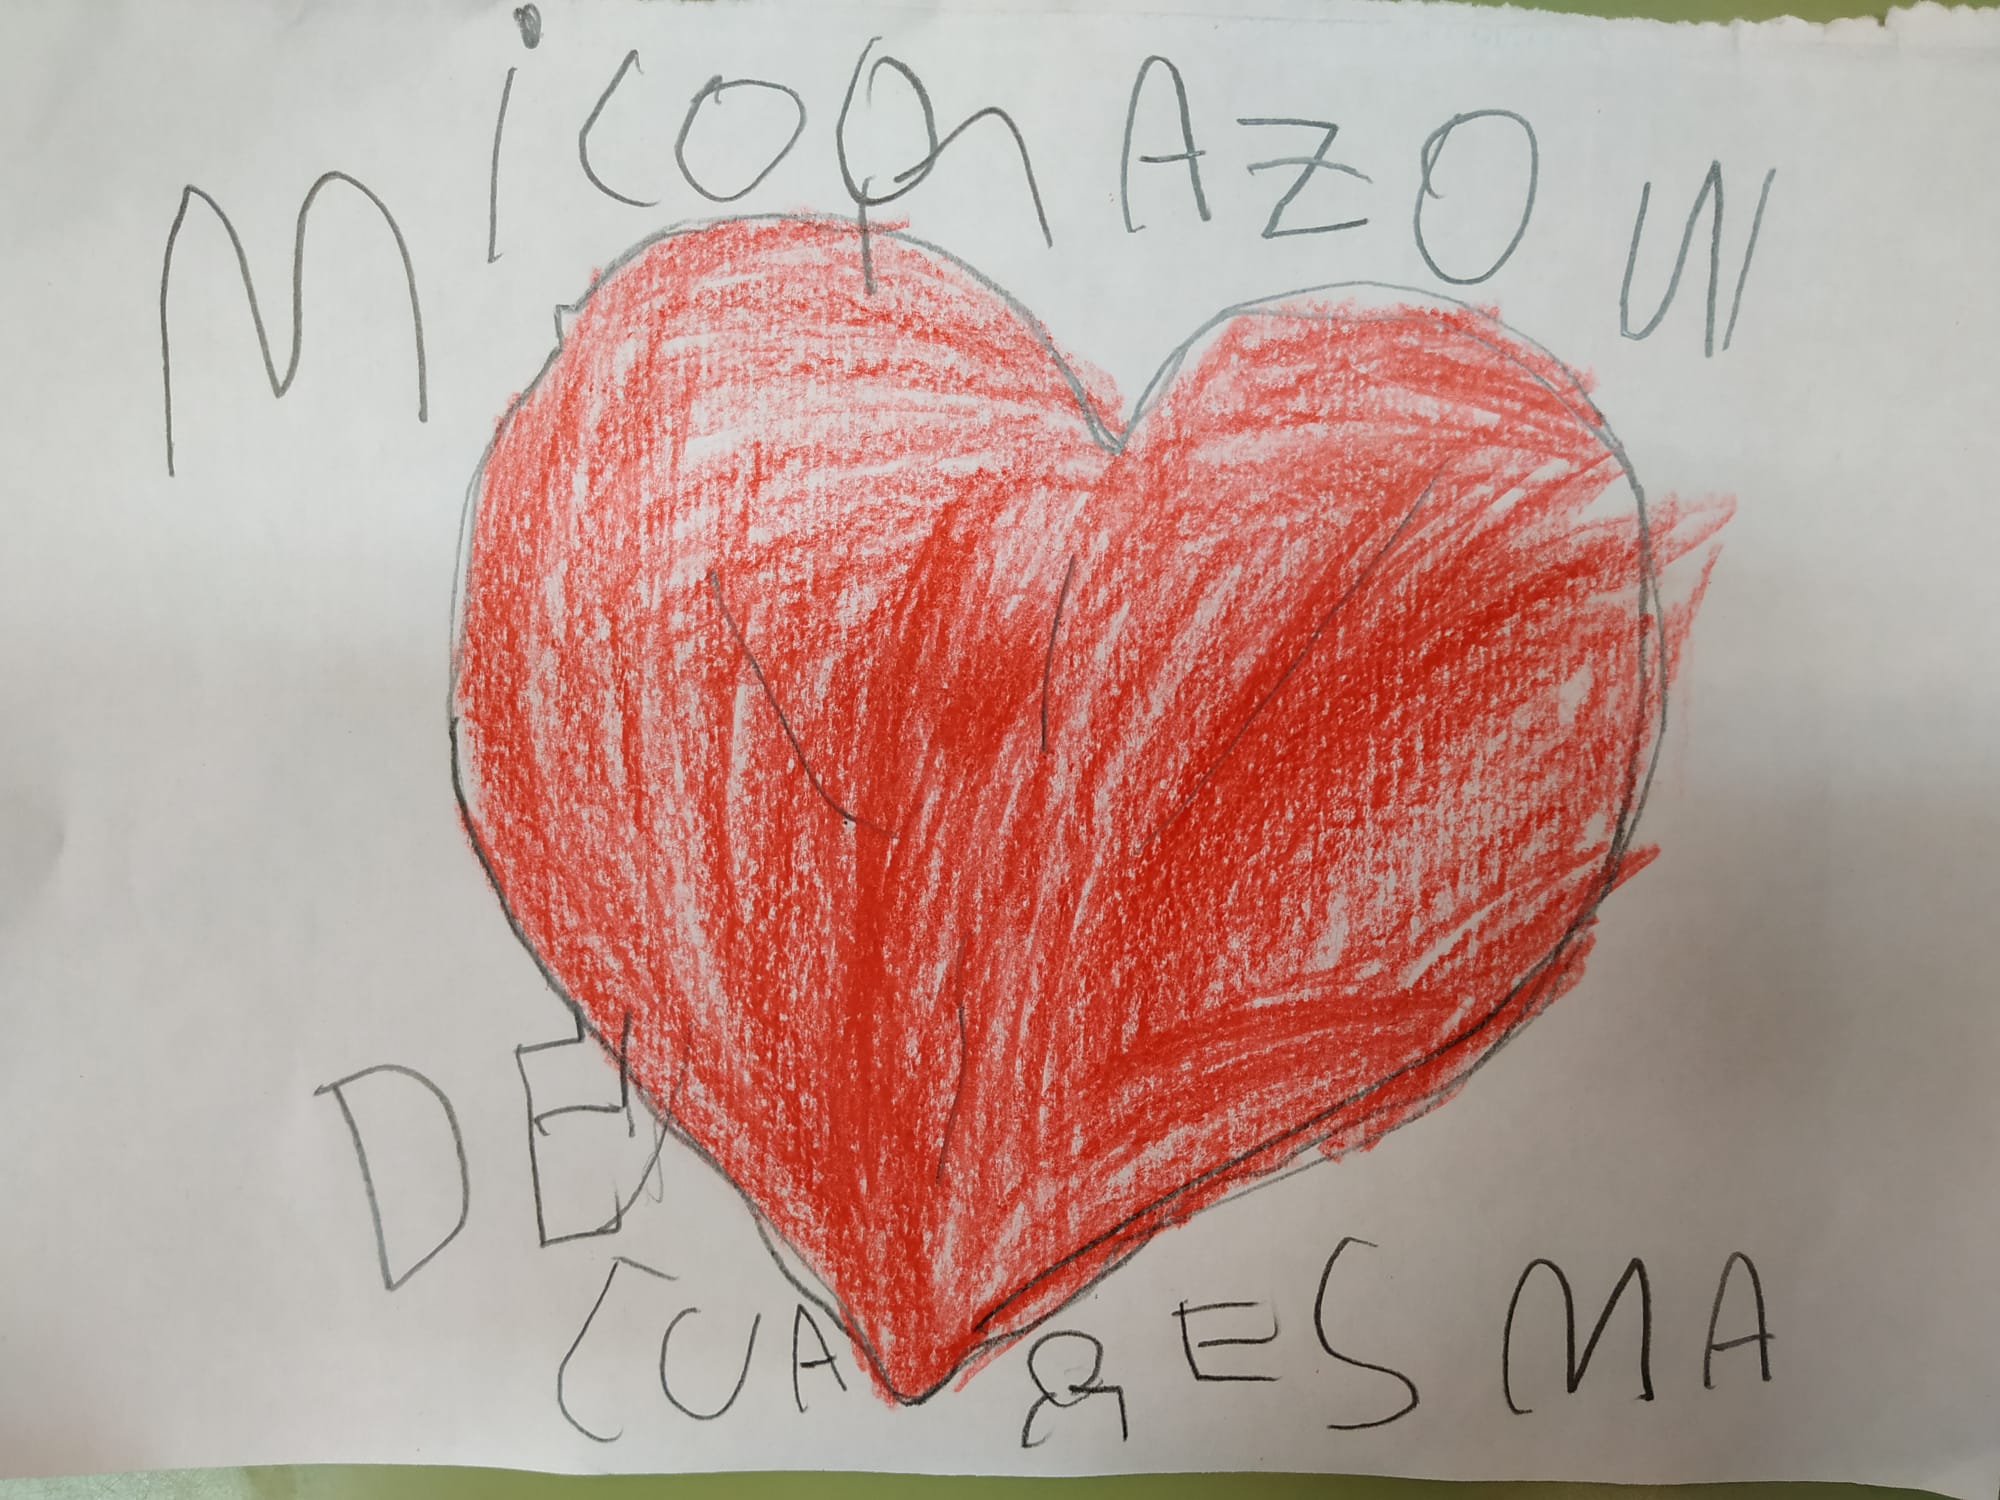 MiCORAZON
DE
CUARESMA